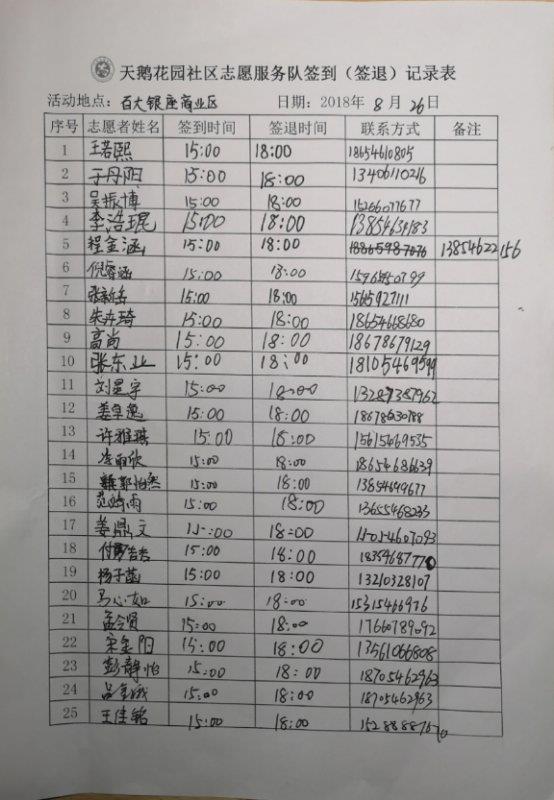 天鹅花园社区志愿服务队签到（签退）记录表
活动地点：百大银座商业区 日期：2018年 8 月 26 日
序号 志愿者姓名 签到时间 签退时间 联系方式 备注
1 王若熙 15:00 18:00 18654610805
2 于丹阳 15:00 18:00 13406110216
3 吴振博 15:00 18:00 15266077677
4 李浩琨 15:00 18:00
5 程金涵 15:00 18:00 13854622156
6 倪睿涵 15:00 18:00
7 张新岳 15:00 18:00
8 朱卉琦 15:00 18:00 18654668680
9 高尚 15:00 18:00 18678679129
10 张东业 15:00 18:00
11 刘星宇 15:00 18:00
12 姜卓逸 15:00 18:00
13 许雅琪 15:00 18:00 15615469535
14 15:00 18:00 18654686639
15 郭怡然 15:00 18:00 13854649677
16 范崎雨 15:00 18:00 13655468233
17 姜鼎文 15:00 18:00 15054607093
18 15:00 18:00
19 杨子菡 15:00 18:00 13210328107
20 马心如 15:00 18:00
21 孟令贤 15:00 18:00 17660789092
22 宋金阳 15:00 18:00 13561066808
23 彭静怡 15:00 18:00 18705462963
24 15:00 18:00 18705462963
25 王佳铭 15:00 18:00